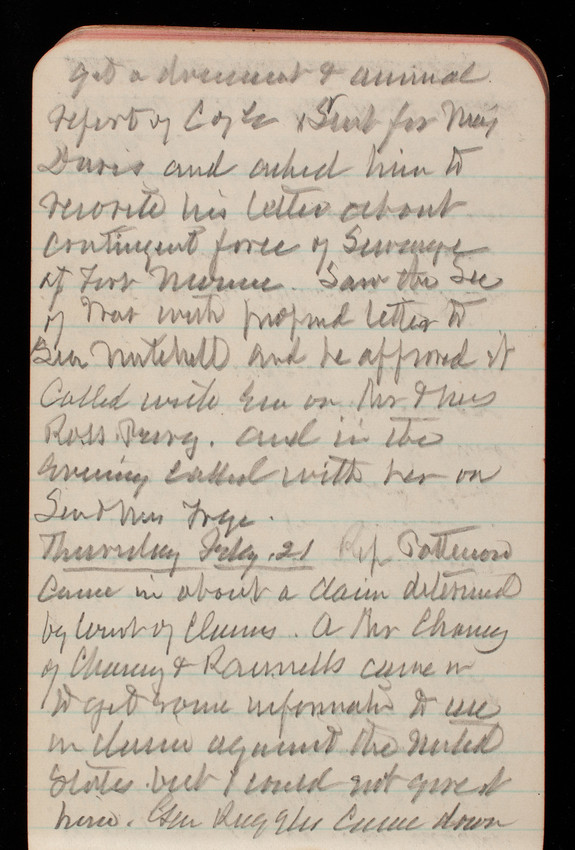 get a document & animal
report of Coyle & Sent for Maj
Davis and asked him to
rewrite his letter about
contingent force of Sewerage
at Fort Monroe. Saw the Sec
of War with proposed letter to
Gen Mitchell and he approved it
Called with Em on Mr & Mrs
Ross Perry. and in the
Evening called with her on
Sen & Mrs Frye.
Thursday Feby. 21 Rep Patterson
Came in about a claim determined
by Court of Claims. A Mr Chaney
of Chaney & came in
to get some information to use
in claim against the United
States but I could not give it
him. Gen Ruggles came down